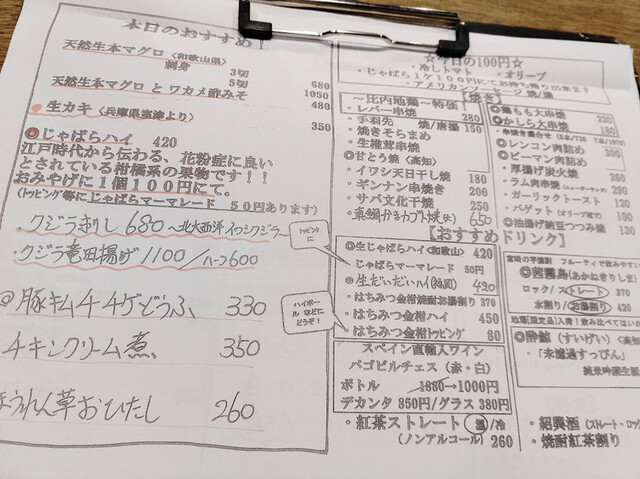 本日のおすすめ！
天然生本マグロ（和歌山県）
刺身 3切 680
天然生本マグロ と ワカメ酢みそ 5切 1050
生カキ（兵庫県室津より） 480
350
◎じゃばらハイ 420
江戸時代から伝わる、花粉症に良い
とされている柑橘系の果物です！！
おみやげに１個１００円にて。
(トッピング等にじゃばらマーマレード ５０円あります)
クジラさしみ 680 ～北大西洋イワシクジラ～
・クジラ竜田揚げ 1100/ハーフ600
豚キムチチゲどうふ 330
チキンクリーム煮 350
ほうれん草おひたし 260
☆今日の100円☆
・冷しトマト ・オリーブ
～比内地鶏～特価【焼き】
・レバー串焼 280
・手羽先 焼/唐揚 150
・焼きそらまめ
・生椎茸串焼
◎甘とう焼（高知）
・イワシ天日干し焼 180
・ギンナン串焼き 200
・サバ文化干焼 250
・真鯛かまカブト焼(大) 650
鶏もも大串焼 220
◎かしら大串焼 180
◎レンコン肉詰め 300
◎ピーマン肉詰め 300
・厚揚げ炭火焼
・ラム肉串焼
・ガーリックトースト
・バゲット(オリーブ油で)
◎油揚げ納豆つつみ焼
【おすすめドリンク】
トッピングに
◎生じゃばらハイ(和歌山) 420
じゃばらマーマレード 50円
◎生だいだいハイ 420
・はちみつ金柑焼酎お湯割り 370
・はちみつ金柑ハイ 450
・はちみつ金柑トッピング 80
ハイボールなどにどうぞ！
スペイン直輸入ワイン
パゴビルチェス（赤・白）
ボトル 1680→1000円
デカンタ 850円/グラス 380円
・紅茶ストレート 温/冷
（ノンアルコール）260
フルーティで飲みやすい
◎茜霧島(あかねきりしま)
ロック/ストレート 370
水割り/お湯割り 420
地酒(限定品)入荷！飲み比べてはいか
◎酔鯨(すいげい)(高知)
「未濾過すっぴん」
純米吟醸生酒
・紹興酒（ストレート・ロック
・焼酎紅茶割り